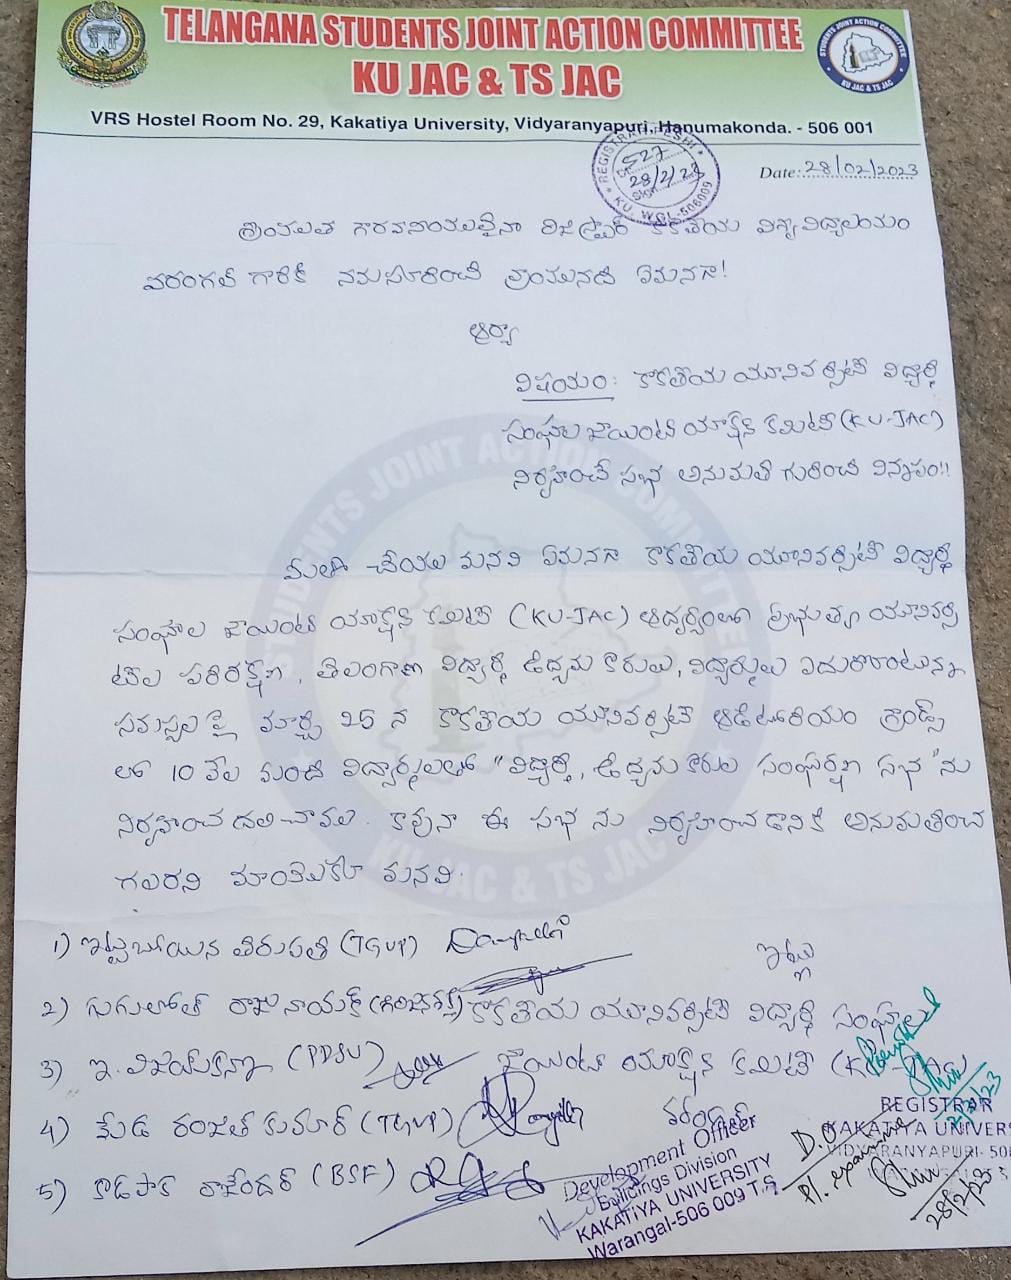 TELANGANA STUDENTS JOINT ACTION COMMITTEE
KU JAC & TS JAC
VRS Hostel Room No. 29, Kakatiya University, Vidyaranyapuri, Hanumakonda. - 506 001
STUDENTS JOINT ACTION COMMITTEE
KU JAC & TS JAC
REGISTRAR PESHI
527
28/2/23
KU, WGL-506009
Date: 28/02/2023
శ్రీయుత గౌరవనీయులైనా రిజిస్ట్రార్ కాకతీయ విశ్వవిద్యాలయం
వరంగల్ గారికి నమస్కరించి వ్రాయునది ఏమనగా!
ఆర్యా
విషయం: కాకతీయ యూనివర్సిటీ విద్యార్థి
సంఘాల జాయింట్ యాక్షన్ కమిటీ (KU-JAC)
నిర్వహించే సభ అనుమతి గురించి విన్నపం!!
మీతో చేయు మనవి ఏమనగా కాకతీయ యూనివర్సిటీ విద్యార్థి
సంఘాల జాయింట్ యాక్షన్ కమిటీ (KU-JAC) ఆధ్వర్యంలో ప్రభుత్వ యూనివర్సి
టీల పరిరక్షణ, తెలంగాణ విద్యార్థి ఉద్యమ కారులు, విద్యార్థులు ఎదుర్కొంటున్న
సమస్యల పై మార్చి 25 న కాకతీయ యూనివర్సిటీ ఆడిటోరియం గ్రౌండ్స్
లో 10 వేల మంది విద్యార్థులతో "విద్యార్థి, ఉద్యమ కారుల సంఘర్షణ సభ" ను
నిర్వహించ దలిచాము. కావునా ఈ సభ ను నిర్వహించడానికి అనుమతించ
గలరని మాయొక్క మనవి.
1) ఇట్టబోయిన తిరుపతి (TGVP)
ఇట్లు
2) గుగులోత్ రాజు నాయక్ కాకతీయ యూనివర్సిటీ విద్యార్థి సంఘాల
3) ఇ. విజయ్ కన్నా (PDSU) జాయింట్ యాక్షన్ కమిటీ
4) మేడ రంజిత్ కుమార్ (TGVP) వరంగల్
5) కాడపాక రాజేందర్ (BSF)
Development Officer
Buildings Division
KAKATIYA UNIVERSITY
Warangal-506 009 T.S.
REGISTRAR
KAKATIYA UNIVERS
VIDYARANYAPURI- 50
D.O
Pl. examine
28/2/23
STUDENTS JOINT ACTION COMMITTEE
KU JAC & TS JAC